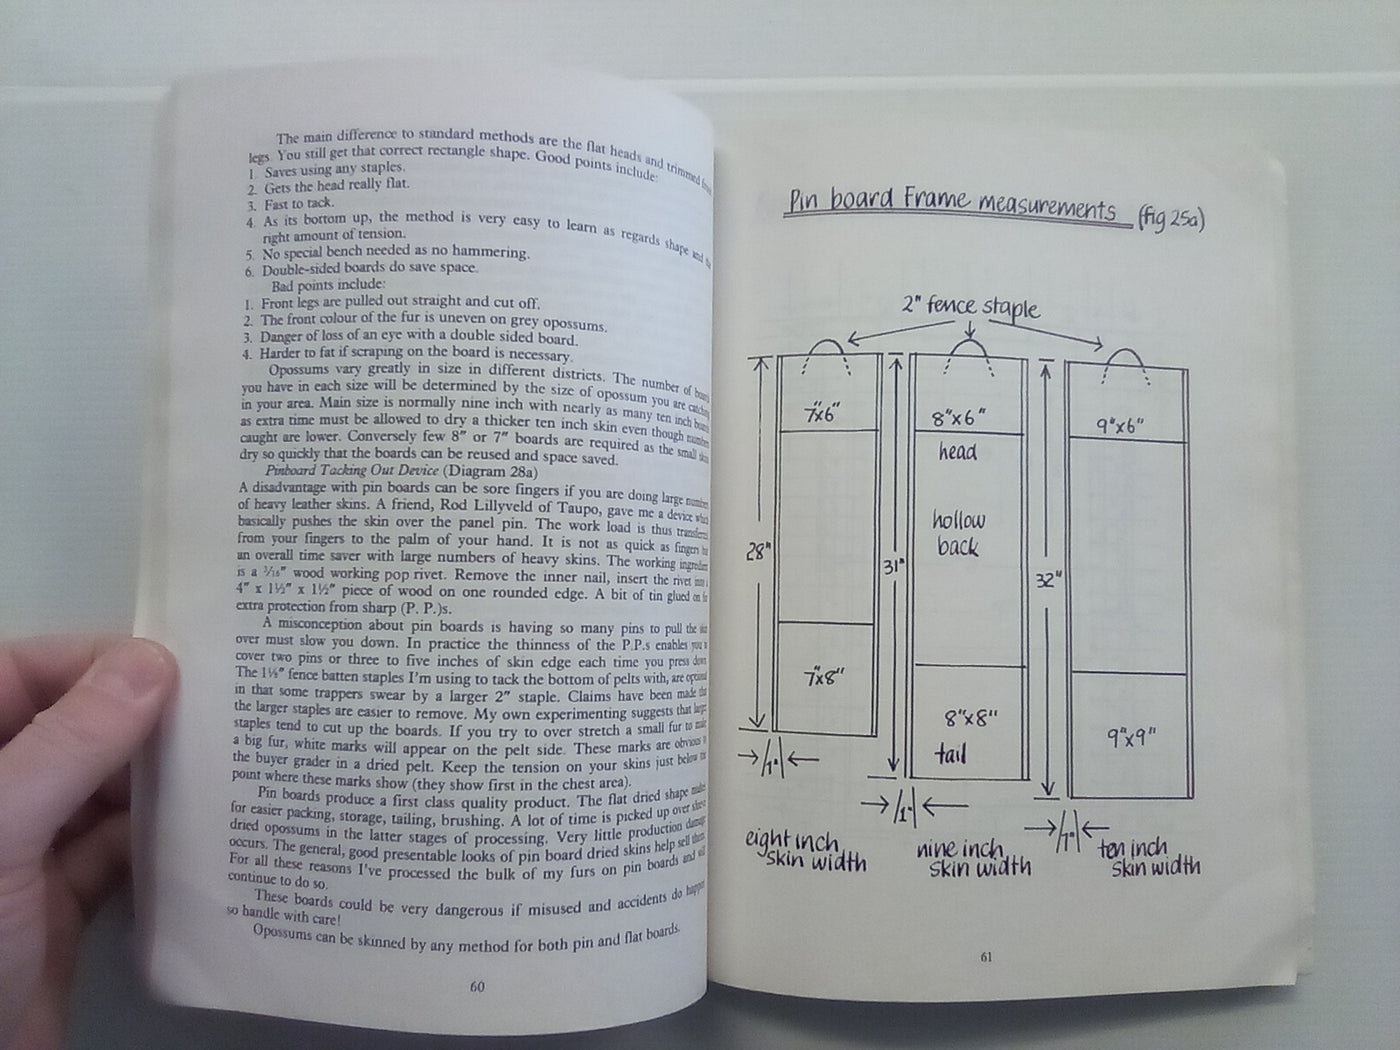 The main difference to standard methods are the flat heads and trimmed front
legs. You still get that correct rectangle shape. Good points include:
1. Saves using any staples.
2. Gets the head really flat.
3. Fast to tack.
4. As its bottom up, the method is very easy to learn as regards shape and the
right amount of tension.
5. No special bench needed as no hammering.
6. Double-sided boards do save space.
Bad points include:
1. Front legs are pulled out straight and cut off.
2. The front colour of the fur is uneven on grey opossums.
3. Danger of loss of an eye with a double sided board.
4. Harder to fat if scraping on the board is necessary.
Opossums vary greatly in size in different districts. The number of boards
you have in each size will be determined by the size of opossum you are catching
in your area. Main size is normally nine inch with nearly as many ten inch boards
as extra time must be allowed to dry a thicker ten inch skin even though numbers
caught are lower. Conversely few 8" or 7" boards are required as the small skins
dry so quickly that the boards can be reused and space saved.
Pinboard Tacking Out Device (Diagram 28a)
A disadvantage with pin boards can be sore fingers if you are doing large numbers
of heavy leather skins. A friend, Rod Lillyveld of Taupo, gave me a device which
basically pushes the skin over the panel pin. The work load is thus transferred
from your fingers to the palm of your hand. It is not as quick as fingers but
an overall time saver with large numbers of heavy skins. The working ingredient
is a 3/16" wood working pop rivet. Remove the inner nail, insert the rivet into a
4" x 1½" x 1½" piece of wood on one rounded edge. A bit of tin glued on for
extra protection from sharp (P. P.)s.
A misconception about pin boards is having so many pins to pull the skin
over must slow you down. In practice the thinness of the P.P.s enables you to
cover two pins or three to five inches of skin edge each time you press down.
The 1½" fence batten staples I'm using to tack the bottom of pelts with, are optional
in that some trappers swear by a larger 2" staple. Claims have been made that
the larger staples are easier to remove. My own experimenting suggests that larger
staples tend to cut up the boards. If you try to over stretch a small fur to make
a big fur, white marks will appear on the pelt side. These marks are obvious to
the buyer grader in a dried pelt. Keep the tension on your skins just below the
point where these marks show (they show first in the chest area).
Pin boards produce a first class quality product. The flat dried shape makes
for easier packing, storage, tailing, brushing. A lot of time is picked up over sleeve
dried opossums in the latter stages of processing. Very little production damage
occurs. The general, good presentable looks of pin board dried skins help sell them.
For all these reasons I've processed the bulk of my furs on pin boards and will
continue to do so.
These boards could be very dangerous if misused and accidents do happen
so handle with care!
Opossums can be skinned by any method for both pin and flat boards.
60
Pin board Frame measurements (fig 25a)
2" fence staple
7"x6"
28"
7"x8"
1"
eight inch
skin width
8"x6"
head
hollow
back
31"
8"x8"
tail
1"
nine inch
skin width
9"x6"
32"
9"x9"
1"
ten inch
skin width
61